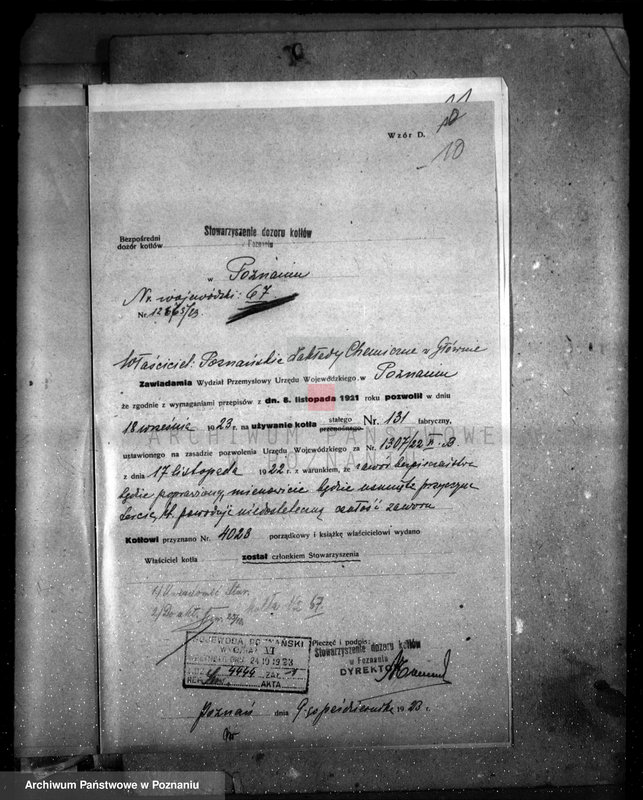 11
10
Wzór D.
10
Bezpośredni
dozór kotłów
Stowarzyszenie dozoru kotłów
w Poznaniu
w Poznaniu
Nr. wojewódzki: 67
Nr.
Właściciel: Poznańskie Zakłady Chemiczne w Głównie
Zawiadamia Wydział Przemysłowy Urzędu Wojewódzkiego w Poznaniu
że zgodnie z wymaganiami przepisów z dn. 8. listopada 1921 roku pozwolił w dniu
18 września 1923, r. na używanie kotła stałego przenośnego Nr. 131 fabryczny,
ustawionego na zasadzie pozwolenia Urzędu Wojewódzkiego za Nr. 1307/22 II. B.
z dnia 17 listopada 1922 r. z warunkiem, że zawór bezpieczeństwa
będzie poprawiony, mianowicie będzie usunięte przyczyna
powoduje niedostateczną zaworu
Kotłowi przyznano Nr. 4023 porządkowy i książkę właścicielowi wydano
Właściciel kotła został członkiem Stowarzyszenia
1/
2/ Do akt kotła No 67.
WOJEWODA POZNAŃSKI
WYDZIAŁ XI
24 10 1923
4446 ZAŁ.
AKTA
Pieczęć i podpis:
Stowarzyszenie dozoru kotłów
w Poznaniu
DYREKTOR
Poznań dnia 9-go października 1923 r.
ARCHIWUM PAŃSTWOWE
W POZNANIU
Archiwum Państwowe w Poznaniu